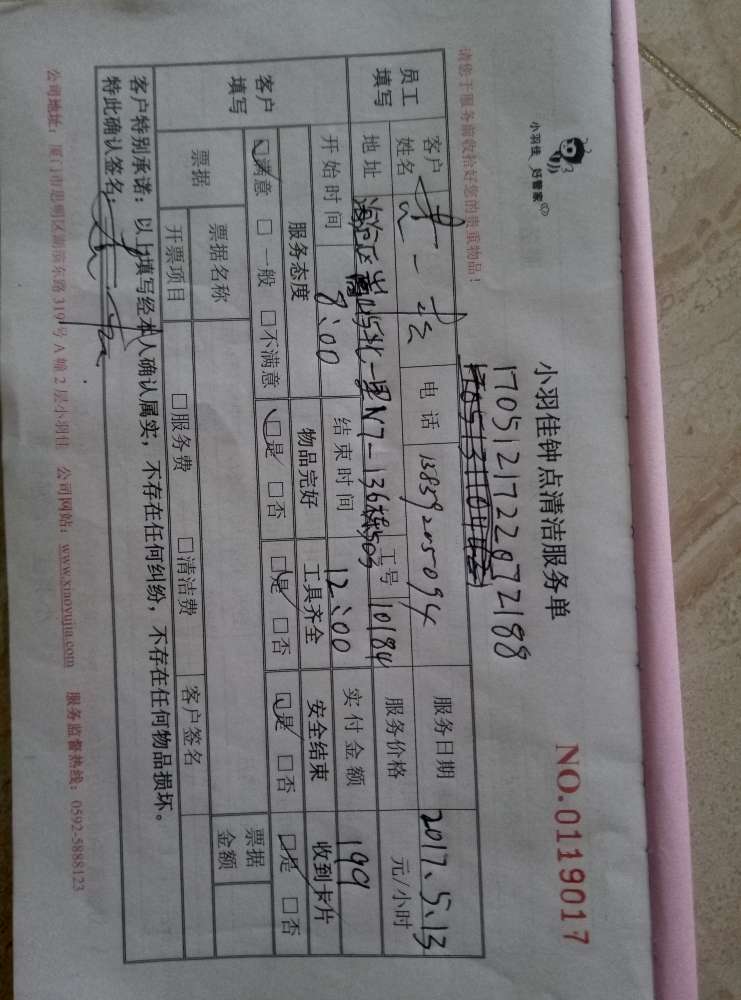 小羽佳 好管家
小羽佳钟点清洁服务单
NO.0119017
17051217220732188
请您于服务前收拾好您的贵重物品！
员工填写 客户姓名 电话 13859205094 服务日期 2017.5.13
地址 工号 10184 服务价格 元/小时
开始时间 8:00 结束时间 12:00 实付金额 199
客户填写 服务态度 物品完好 工具齐全 安全结束 收到卡片
☑满意 □一般 □不满意 ☑是 □否 ☑是 □否 ☑是 □否 ☑是 □否
票据 票据名称 票据金额
开票项目 □服务费 □清洁费 客户签名
客户特别承诺：以上填写经本人确认属实，不存在任何纠纷，不存在任何物品损坏。
特此确认签名：
公司地址：厦门市思明区湖滨东路319号A幢2层小羽佳 公司网站：www.xiaoyujia.com 服务监督热线：0592-5888123